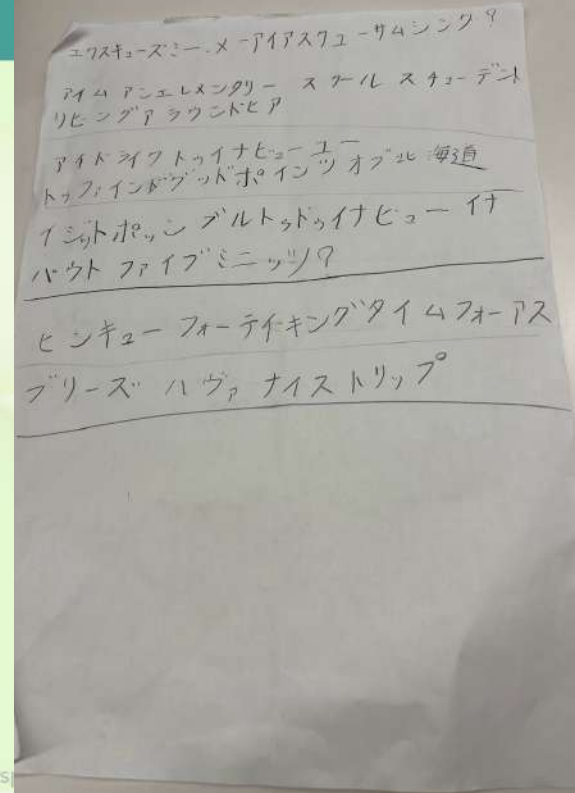 エクスキューズミー.メーアイアスクユーサムシング?
アイム アンエレメンタリー スクール スチューデント
リビングアラウンドヒア
アイドライクトゥイナビューユー
トゥファインドグッドポインツオブ北海道
イジットポッシブルトゥドゥイナビューイナ
バウトファイブミニッツ?
センキューフォーテイキングタイムフォーアス
プリーズ ハヴァナイストリップ